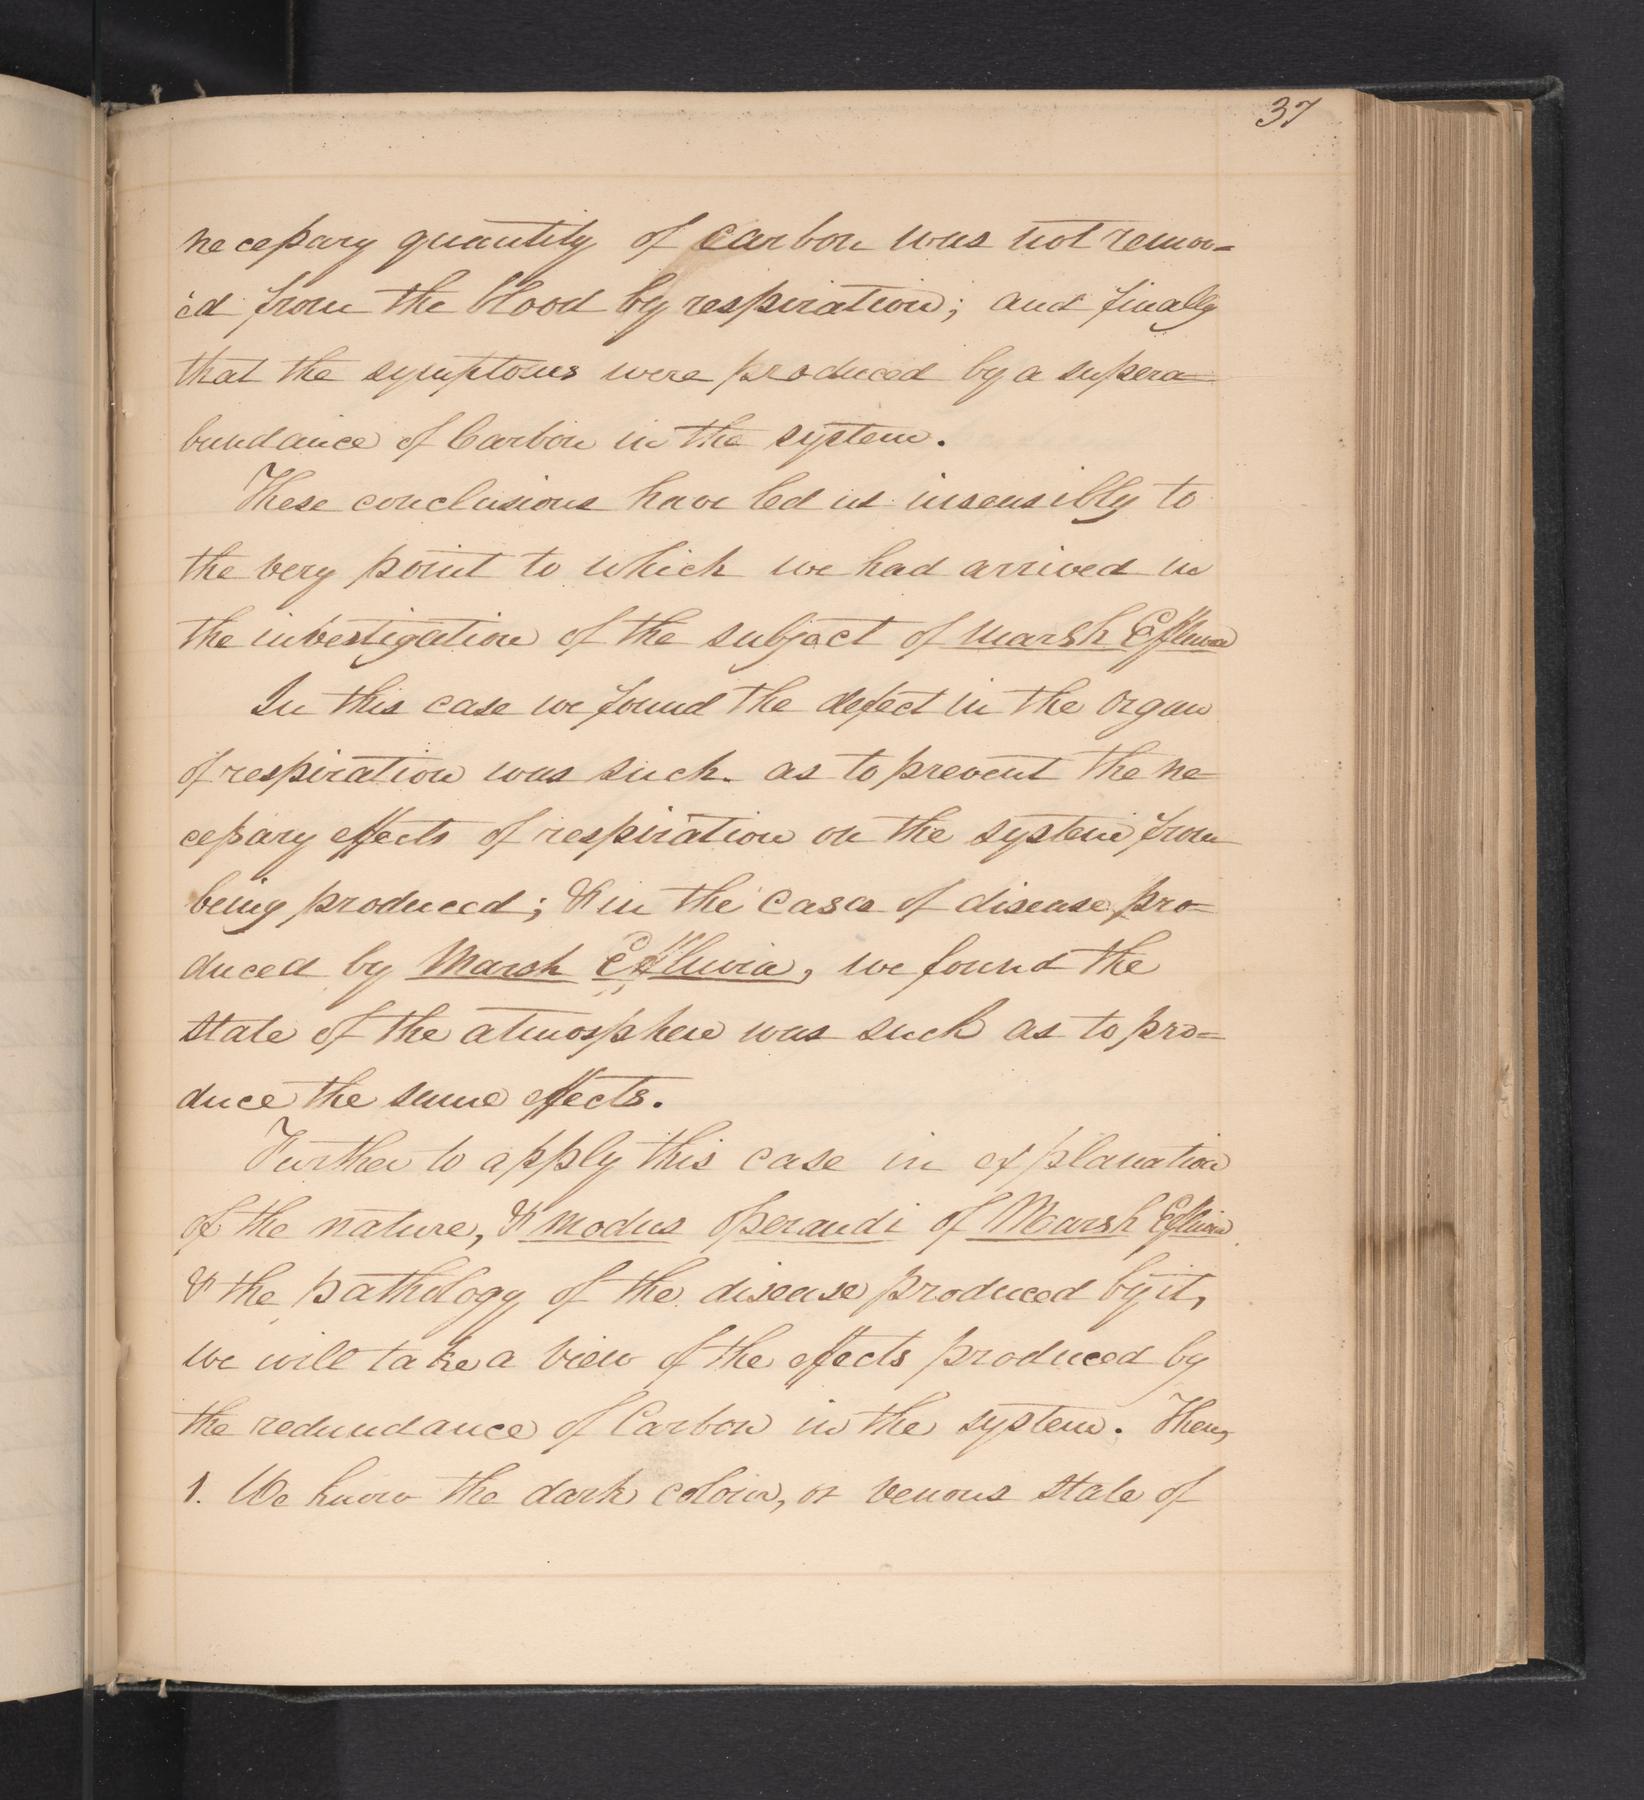 37
necessary quantity of carbon was not remov=
ed from the blood by respiration; and finally
that the symptoms were produced by a supera=
bundance of Carbon in the system.
These conclusions have led us insensibly to
the very point to which we had arrived in
the investigation of the subject of Marsh Effluvia
In this case we found the defect in the organ
of respiration was such as to prevent the ne=
cessary effects of respiration on the system from
being produced; & in the cases of disease pro=
duced by Marsh Effluvia, we found the
state of the atmosphere was such as to pro=
duce the same effects.
Further to apply this case in explanation
of the nature, & modus operandi of Marsh Effluvia
& the pathology of the disease produced by it,
we will take a view of the effects produced by
the redundance of Carbon in the system. Then,
1. We know the dark colour, or venous state of